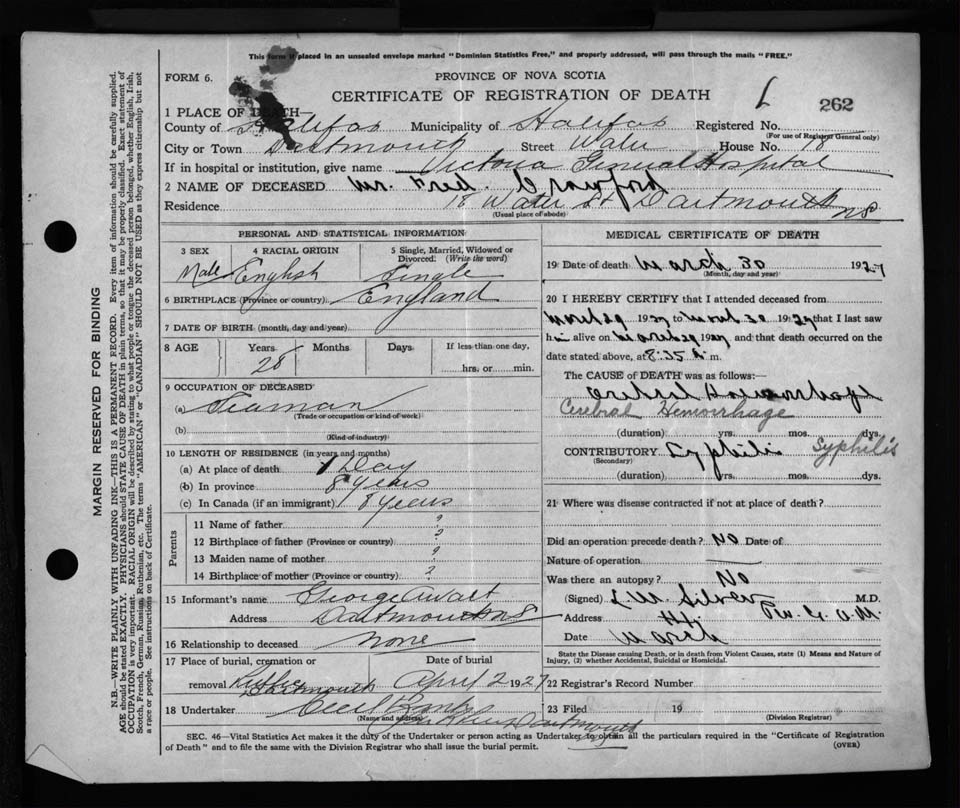 This form if placed in an unsealed envelope marked "Dominion Statistics Free," and properly addressed, will pass through the mails "FREE."
FORM 6.
PROVINCE OF NOVA SCOTIA
CERTIFICATE OF REGISTRATION OF DEATH
262
1 PLACE OF DEATH—
County of Halifax Municipality of Halifax Registered No.
(For use of Registrar General only)
City or Town Dartmouth Street Water House No. 18
If in hospital or institution, give name Victoria General Hospital
2 NAME OF DECEASED Mr. Fred. Crawford
Residence 18 Water St Dartmouth NS
(Usual place of abode)
PERSONAL AND STATISTICAL INFORMATION
3 SEX Male
4 RACIAL ORIGIN English
5 Single, Married, Widowed or Divorced. (Write the word) Single
6 BIRTHPLACE (Province or country) England
7 DATE OF BIRTH (month, day and year)
8 AGE Years 28 Months Days If less than one day, hrs. or min.
9 OCCUPATION OF DECEASED
(a) Seaman
(Trade or occupation or kind of work)
(b)
(Kind of industry)
10 LENGTH OF RESIDENCE (in years and months)
(a) At place of death 1 Day
(b) In province 8 years
(c) In Canada (if an immigrant) 8 years
Parents
11 Name of father ?
12 Birthplace of father (Province or country) ?
13 Maiden name of mother ?
14 Birthplace of mother (Province or country) ?
15 Informant's name George
Address Dartmouth NS
16 Relationship to deceased none
17 Place of burial, cremation or removal Dartmouth
Date of burial April 2 1927
18 Undertaker Cecil
(Name and address) Dartmouth
MEDICAL CERTIFICATE OF DEATH
19 Date of death March 30 1927
(Month, day and year)
20 I HEREBY CERTIFY that I attended deceased from
March 29 1927 to March 30 1927 that I last saw
him alive on March 29 1927 and that death occurred on the
date stated above, at 8:35 m.
The CAUSE OF DEATH was as follows:
Cerebral Hemorrhage
Cerebral Hemorrhage
(duration) yrs. mos. dys.
CONTRIBUTORY Syphilis Syphilis
(Secondary)
(duration) yrs. mos. dys.
21 Where was disease contracted if not at place of death?
Did an operation precede death? No Date of
Nature of operation
Was there an autopsy? No
(Signed) Silver M.D.
Address
Date March
State the Disease causing Death, or in death from Violent Causes, state (1) Means and Nature of
Injury, (2) whether Accidental, Suicidal or Homicidal.
22 Registrar's Record Number
23 Filed 19
(Division Registrar)
SEC. 46—Vital Statistics Act makes it the duty of the Undertaker or person acting as Undertaker to obtain all the particulars required in the "Certificate of Registration
of Death" and to file the same with the Division Registrar who shall issue the burial permit.
(OVER)
MARGIN RESERVED FOR BINDING
N.B.—WRITE PLAINLY WITH UNFADING INK—THIS IS A PERMANENT RECORD. Every item of information should be carefully supplied.
AGE should be stated EXACTLY. PHYSICIANS should STATE CAUSE OF DEATH in plain terms, so that it may be properly classified. Exact statement of
OCCUPATION is very important. RACIAL ORIGIN will be described by stating to what people or tongue the deceased person belonged, whether English, Irish,
Scotch, French, German, Russian, Ruthenian, etc. The terms "AMERICAN" or "CANADIAN" SHOULD NOT BE USED as they express citizenship but not
a race or people. See instructions on back of Certificate.